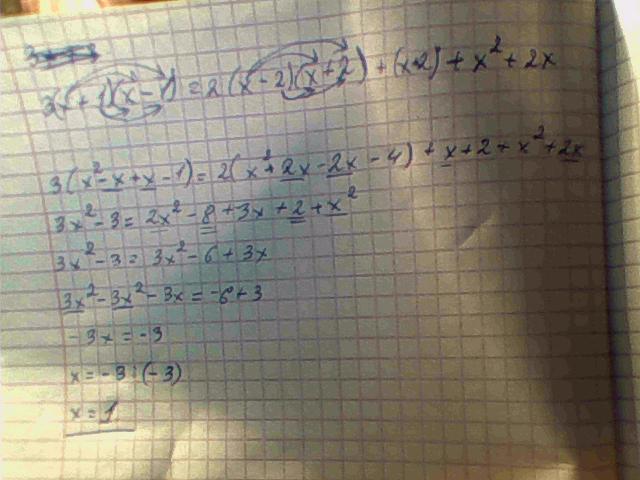 3(x+1)(x-1)=2(x-2)(x+2)+(x+2)+x²+2x
3(x²-x+x-1)=2(x²+2x-2x-4)+x+2+x²+2x
3x²-3=2x²-8+3x+2+x²
3x²-3=3x²-6+3x
3x²-3x²-3x=-6+3
-3x=-3
x=-3:(-3)
x=1